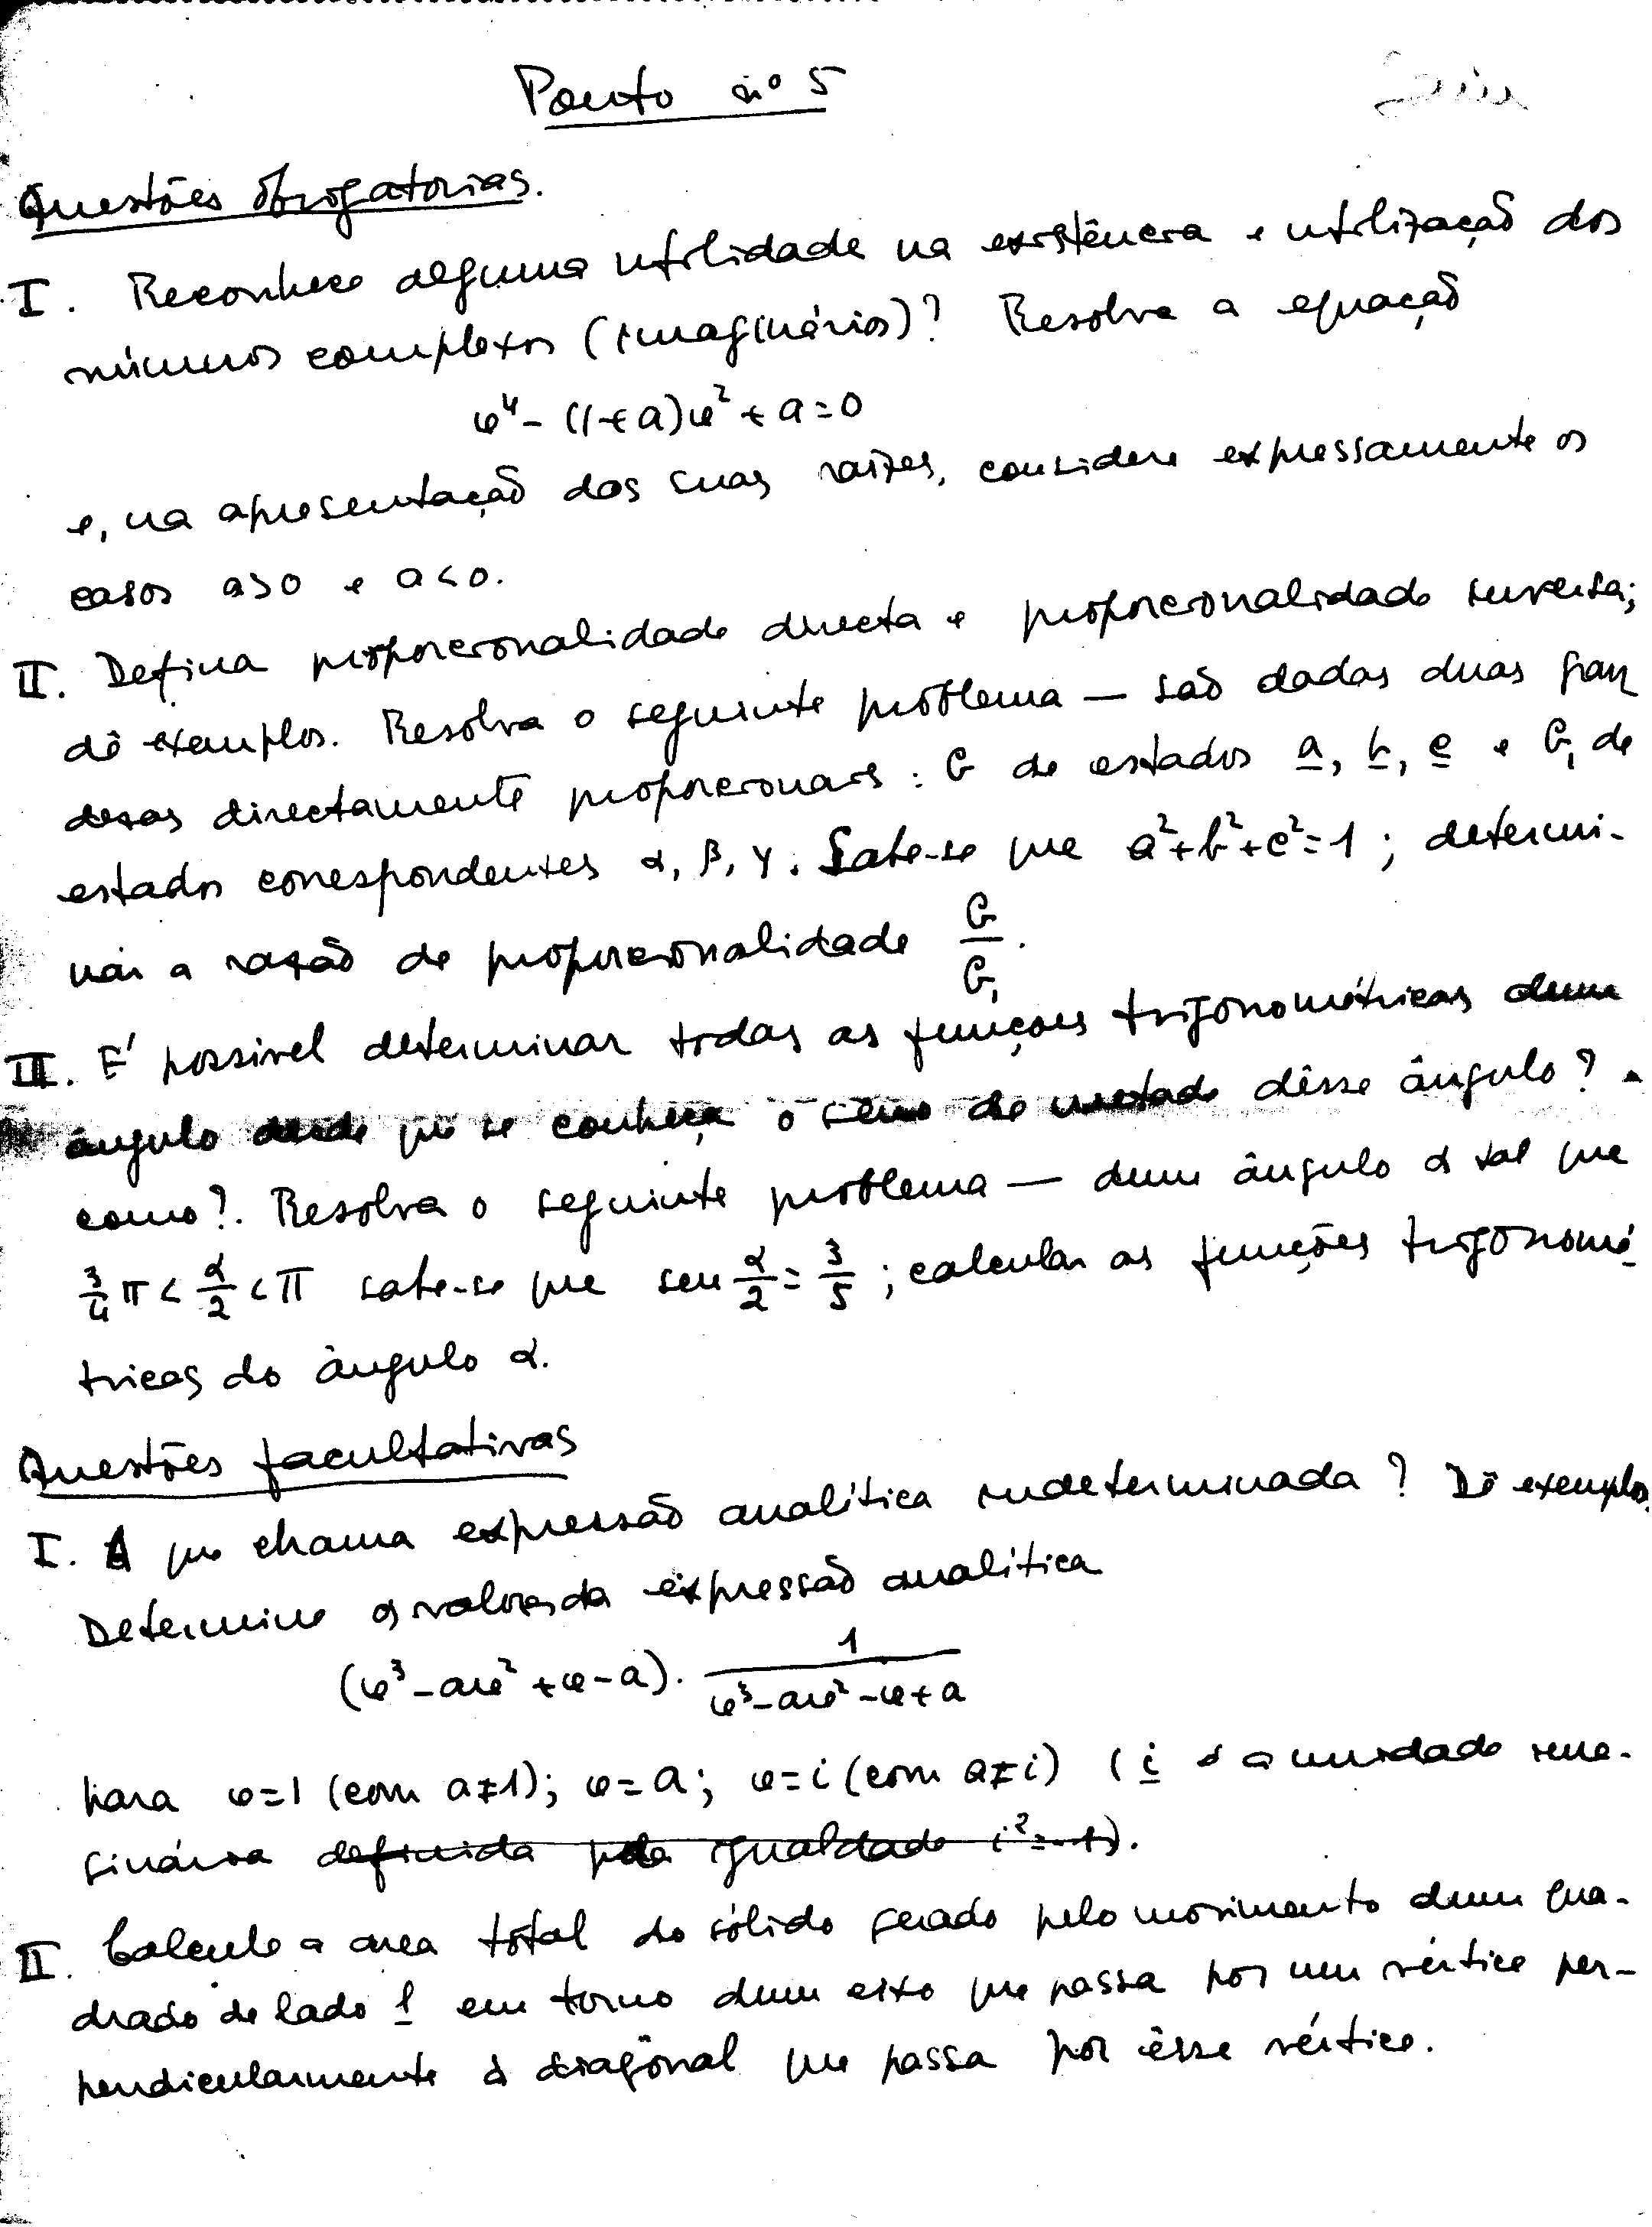 Ponto nº 5
Questões obrigatorias.
I. Reconhece alguma utilidade na existência e utilização dos
números complexos (imaginários)? Resolva a equação
x⁴ - (1+a)x² + a = 0
e, na apresentação das suas raízes, considere expressamente os
casos a>0 e a<0.
II. Defina proporcionalidade directa e proporcionalidade inversa;
dê exemplos. Resolva o seguinte problema — são dadas duas gran
dezas directamente proporcionais: G de estados a, b, c e G₁ de
estados correspondentes α, β, γ. Sabe-se que a²+b²+c²=1; determi-
nar a razão de proporcionalidade G/G₁.
III. E' possivel determinar todas as funções trigonométricas dum
ângulo desde que se conheça o seno de metade dêsse ângulo?
como?. Resolva o seguinte problema — dum ângulo α tal que
3/4 π < α/2 < π sabe-se que sen α/2 = 3/5; calcular as funções trigonomé-
tricas do ângulo α.
Questões facultativas
I. A que chama expressão analítica indeterminada? Dê exemplos.
Determine os valores da expressão analítica
(x³-ax²+x-a). 1/(x³-ax²-x+a)
para x=1 (com a≠1); x=a; x=i (com a≠i) (i é a unidade ima-
ginária definida pela igualdade i²=-1).
II. Calcule a area total do sólido gerado pelo movimento dum qua-
drado de lado l em torno dum eixo que passa por um vértice per-
pendicularmente à diagonal que passa por êsse vértice.